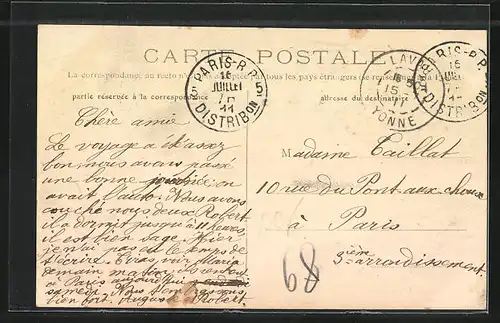 CARTE POSTALE
La correspondance au recto n'est pas acceptée par tous les pays étrangers (se renseigner à la Poste)
partie réservée à la correspondance
adresse du destinataire
PARIS-R.P.
16
JUILLET
11
DISTRIBON
5
AVALLON
15
YONNE
PARIS-R.P.
16
11
DISTRIBON
Chère amie
Le voyage a été assez
bon, nous avons passé
une bonne journée, on
avait l'auto. Nous avons
couché nous deux Robert
il a dormir jusqu'à 11 heures,
il est bien sage. Hier
je n'ai pas eu le temps de
t'écrire. Tu vas voir Maria
demain matin,
à Paris
samedi. Nous t'embrassons
bien fort. Robert.
Madame Taillat
10 rue du Pont aux choux
à Paris
3ième arrondissement.
68